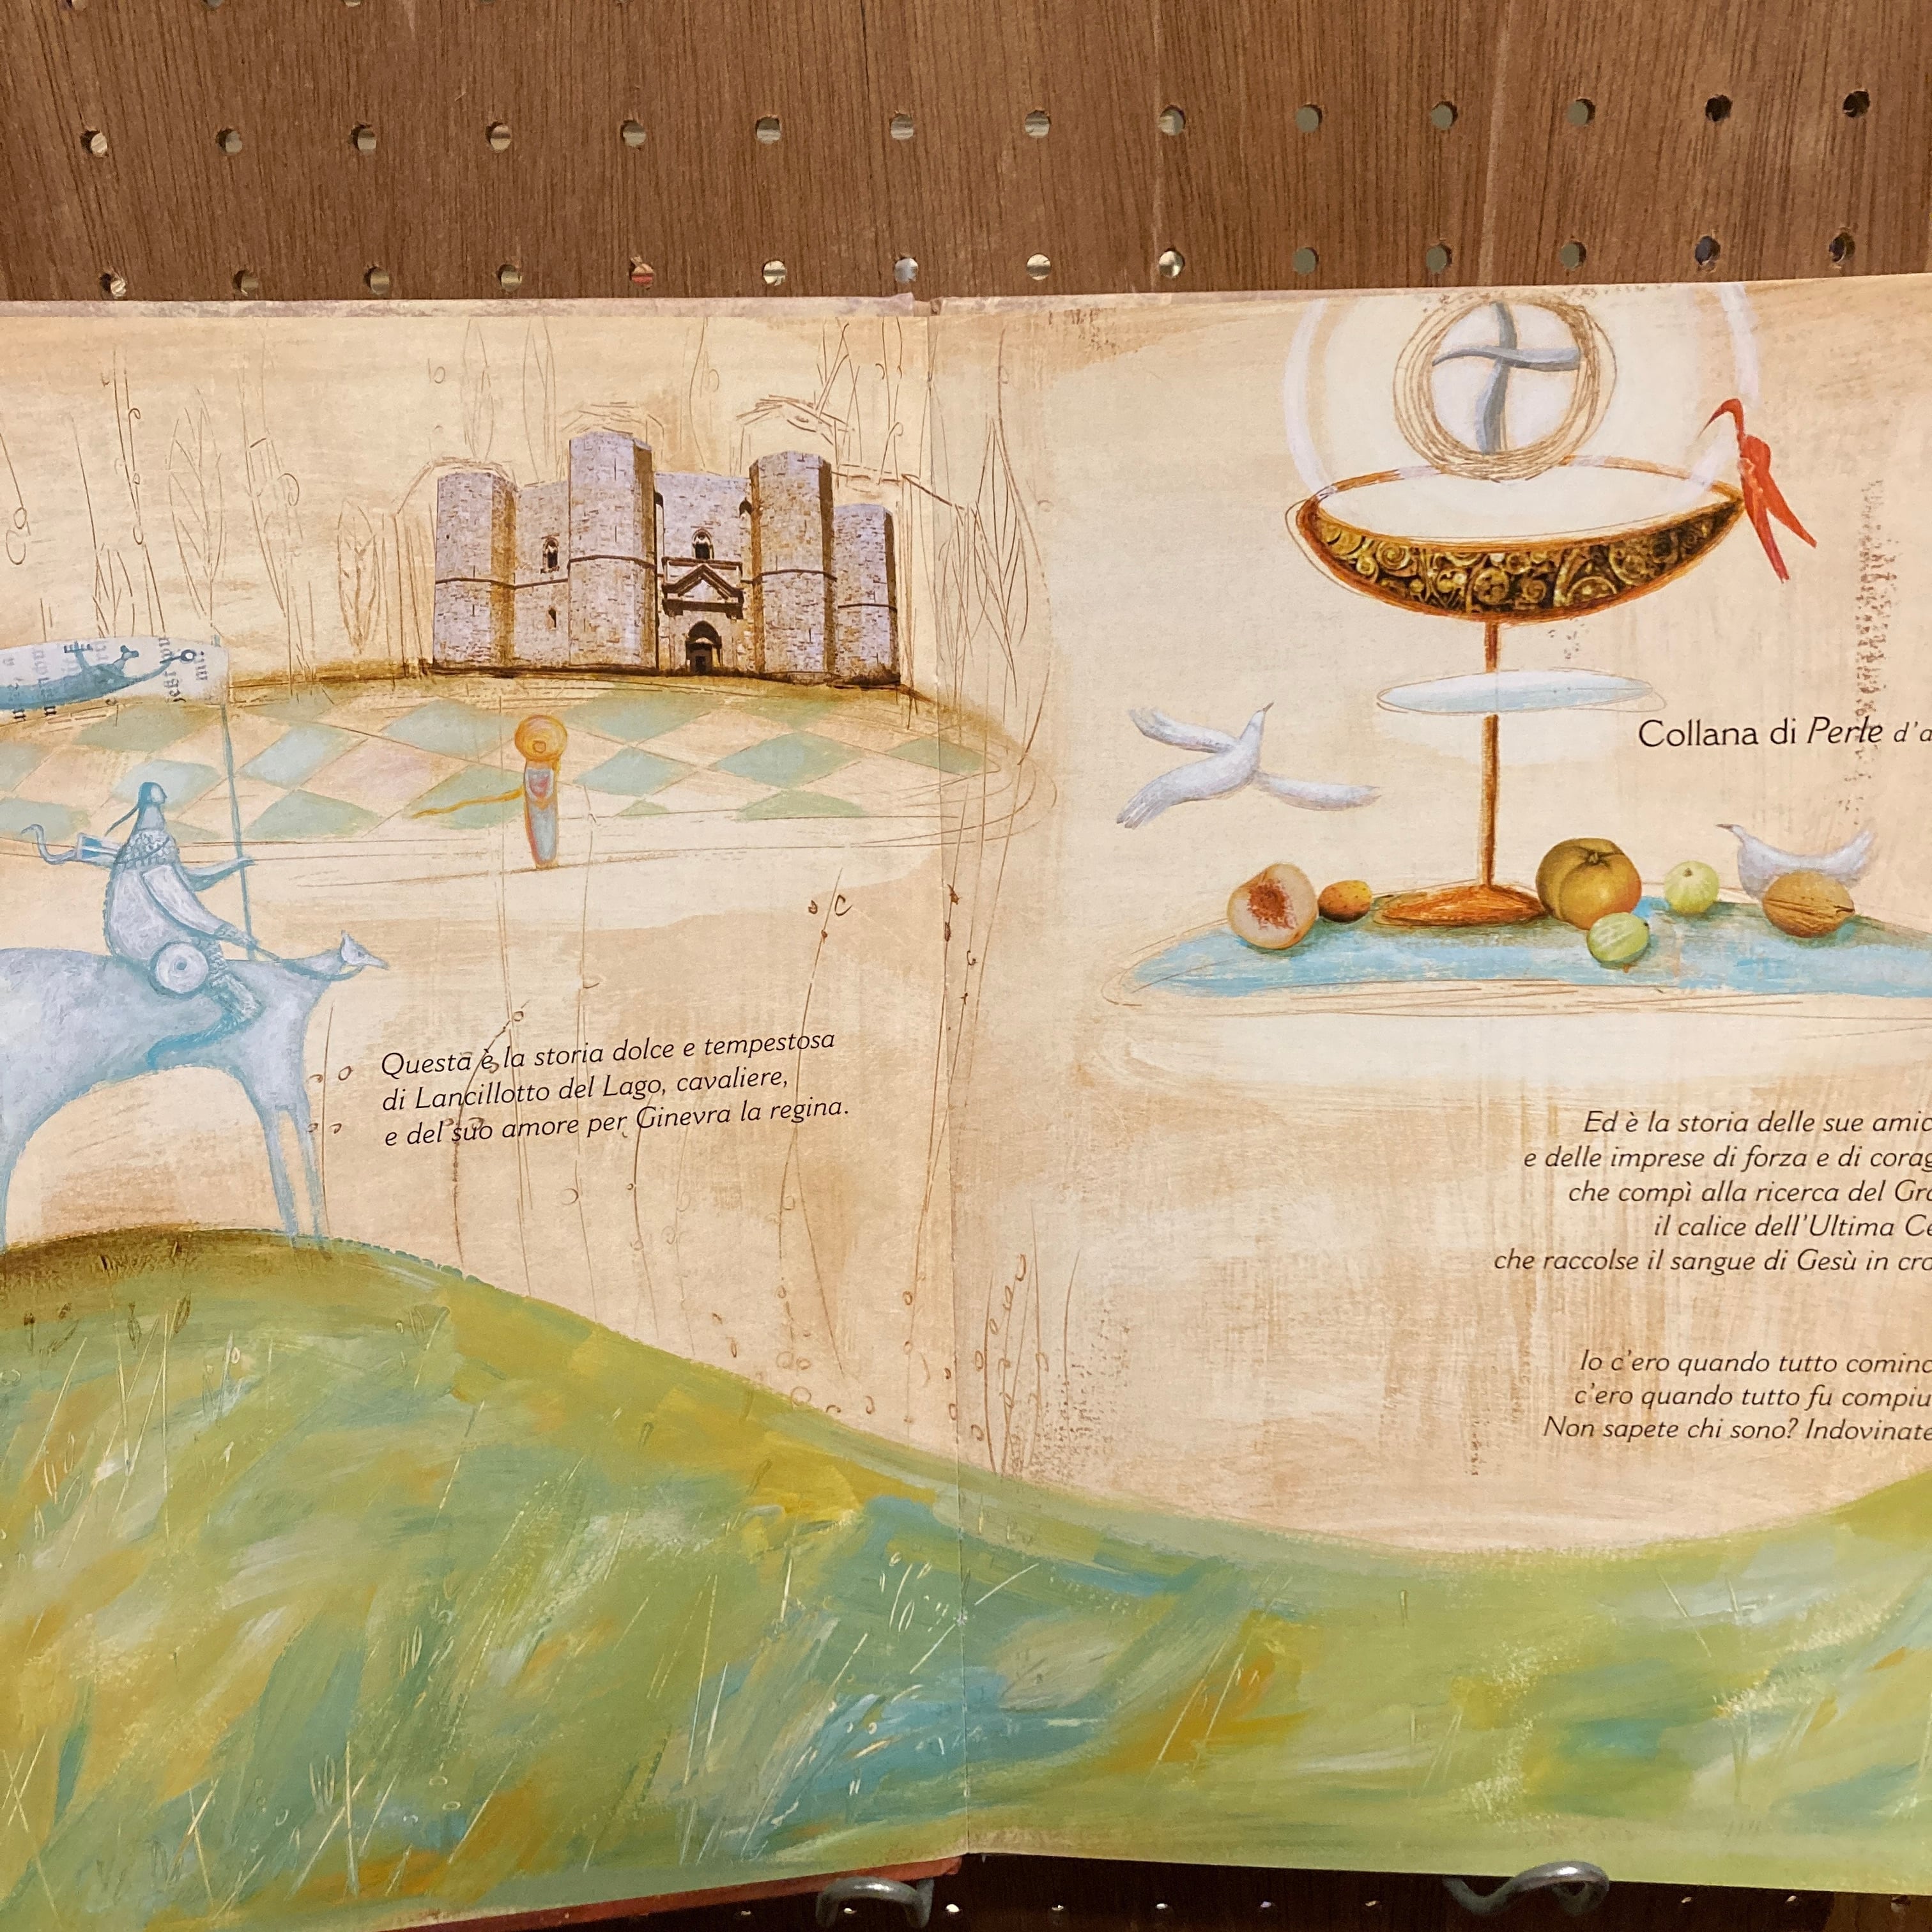 Questa è la storia dolce e tempestosa
di Lancillotto del Lago, cavaliere,
e del suo amore per Ginevra la regina.
Collana di Perle d'a
Ed è la storia delle sue amic
e delle imprese di forza e di corag
che compì alla ricerca del Gra
il calice dell'Ultima Ce
che raccolse il sangue di Gesù in cro
Io c'ero quando tutto cominc
c'ero quando tutto fu compiu
Non sapete chi sono? Indovinate